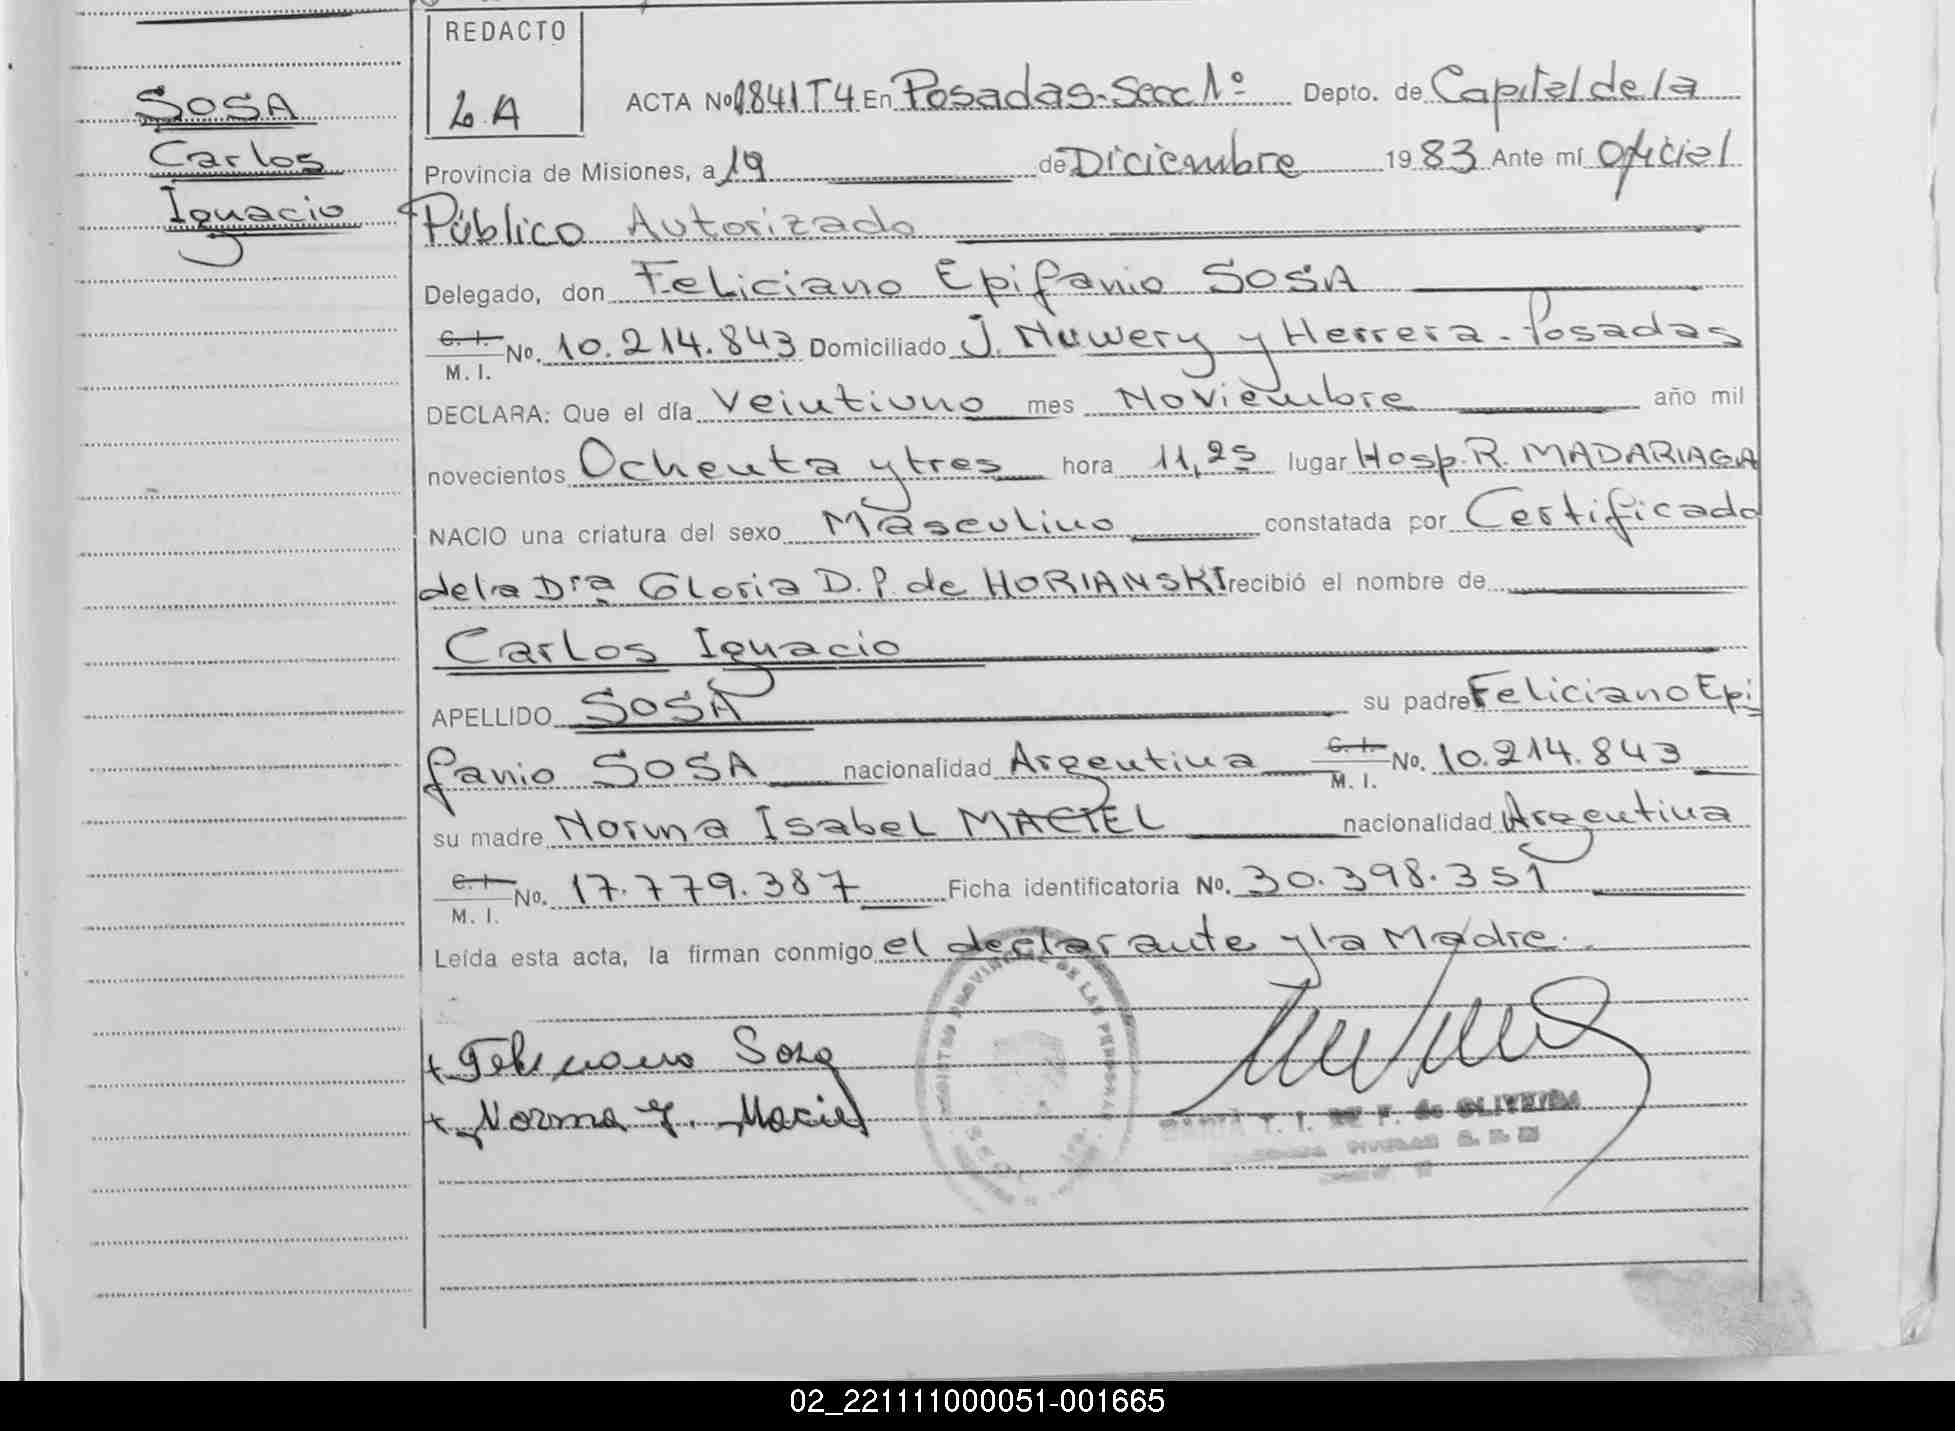 REDACTO
L.A
SOSA
Carlos
Ignacio
ACTA No 1841T4 En Posadas-Secc 1º Depto. de Capital de la
Provincia de Misiones, a 19 de Diciembre 1983 Ante mí Oficial
Público Autorizado
Delegado, don Feliciano Epifanio SOSA
C. I.
M. I. No. 10.214.843 Domiciliado J. Nuwery y Herrera - Posadas
DECLARA: Que el día Veintiuno mes Noviembre año mil
novecientos Ochenta y tres hora 11,25 lugar Hosp. R. MADARIAGA
NACIO una criatura del sexo Masculino constatada por Certificado
de la Dra Gloria D. P. de HORIANSKI recibió el nombre de
Carlos Ignacio
APELLIDO SOSA su padre Feliciano Epi
fanio SOSA nacionalidad Argentina C. I. M. I. No. 10.214.843
su madre Norma Isabel MACIEL nacionalidad Argentina
C. I.
M. I. No. 17.779.387 Ficha identificatoria No. 30.398.351
Leída esta acta, la firman conmigo el declarante y la Madre.
+ Feliciano Sosa
+ Norma I. Maciel
PROVINCIAL DE LAS PERSONAS
T. I. DE F. de OLIVEIRA
02_221111000051-001665